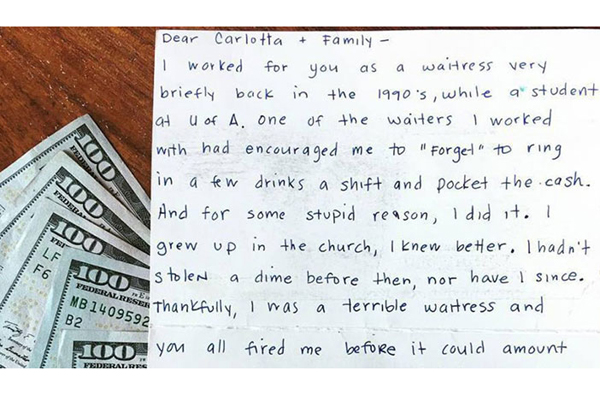 Dear Carlotta + Family -
I worked for you as a waitress very
briefly back in the 1990's, while a student
at U of A. One of the waiters I worked
with had encouraged me to "Forget" to ring
in a few drinks a shift and pocket the cash.
And for some stupid reason, I did it. I
grew up in the church, I knew better. I hadn't
stolen a dime before then, nor have I since.
Thankfully, I was a terrible waitress and
you all fired me before it could amount
100
100
100
LF
F6
100
FEDERAL RESERVE
MB1409592
B2
100
FEDERAL RESER